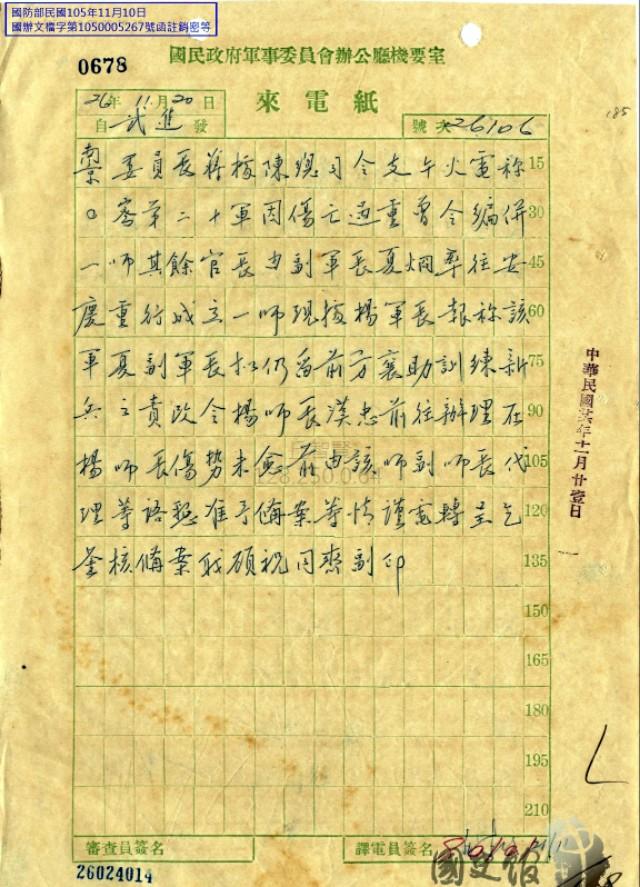 國防部民國105年11月10日
國辦文檔字第1050005267號函註銷密等
0678
國民政府軍事委員會辦公廳機要室
來電紙
26年11月20日
自武進發
號次 26106
185
南京委員長蔣據陳總司令支午火電称 15
。審第二十軍因傷亡過重曾令編併 30
一師其餘官長由副軍長夏炯率往安 45
慶重行成立一師現據楊軍長報称該 60
軍夏副軍長擬仍留前方襄助訓練新 75
兵之責改令楊師長漢忠前往辦理在 90
楊師長傷势未愈前由該師副師長代 105
理等語懇准予備案等情謹電轉呈乞 120
鉴核備案職顧祝同齊副印 135
150
165
180
195
210
中華民國廿六年十一月廿壹日
審查員簽名
譯電員簽名
26024014
國史館